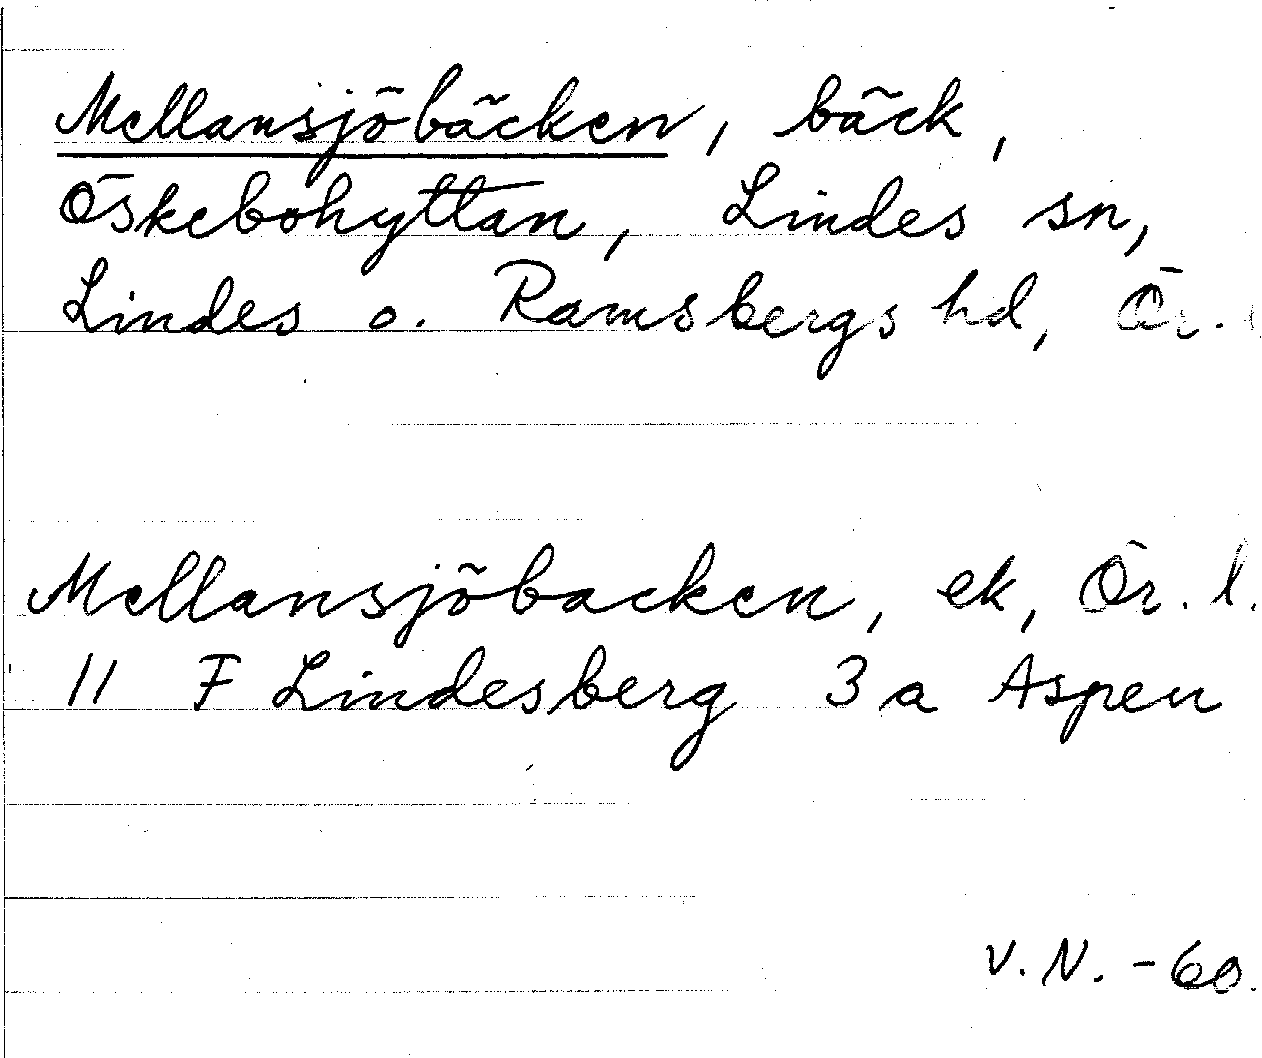 Mellansjöbäcken, bäck,
Öskebohyttan, Lindes sn,
Lindes o. Ramsbergs hd, Ör. l
Mellansjöbacken, ek, Ör. l.
11 F Lindesberg 3 a Aspen
V. N. - 60.